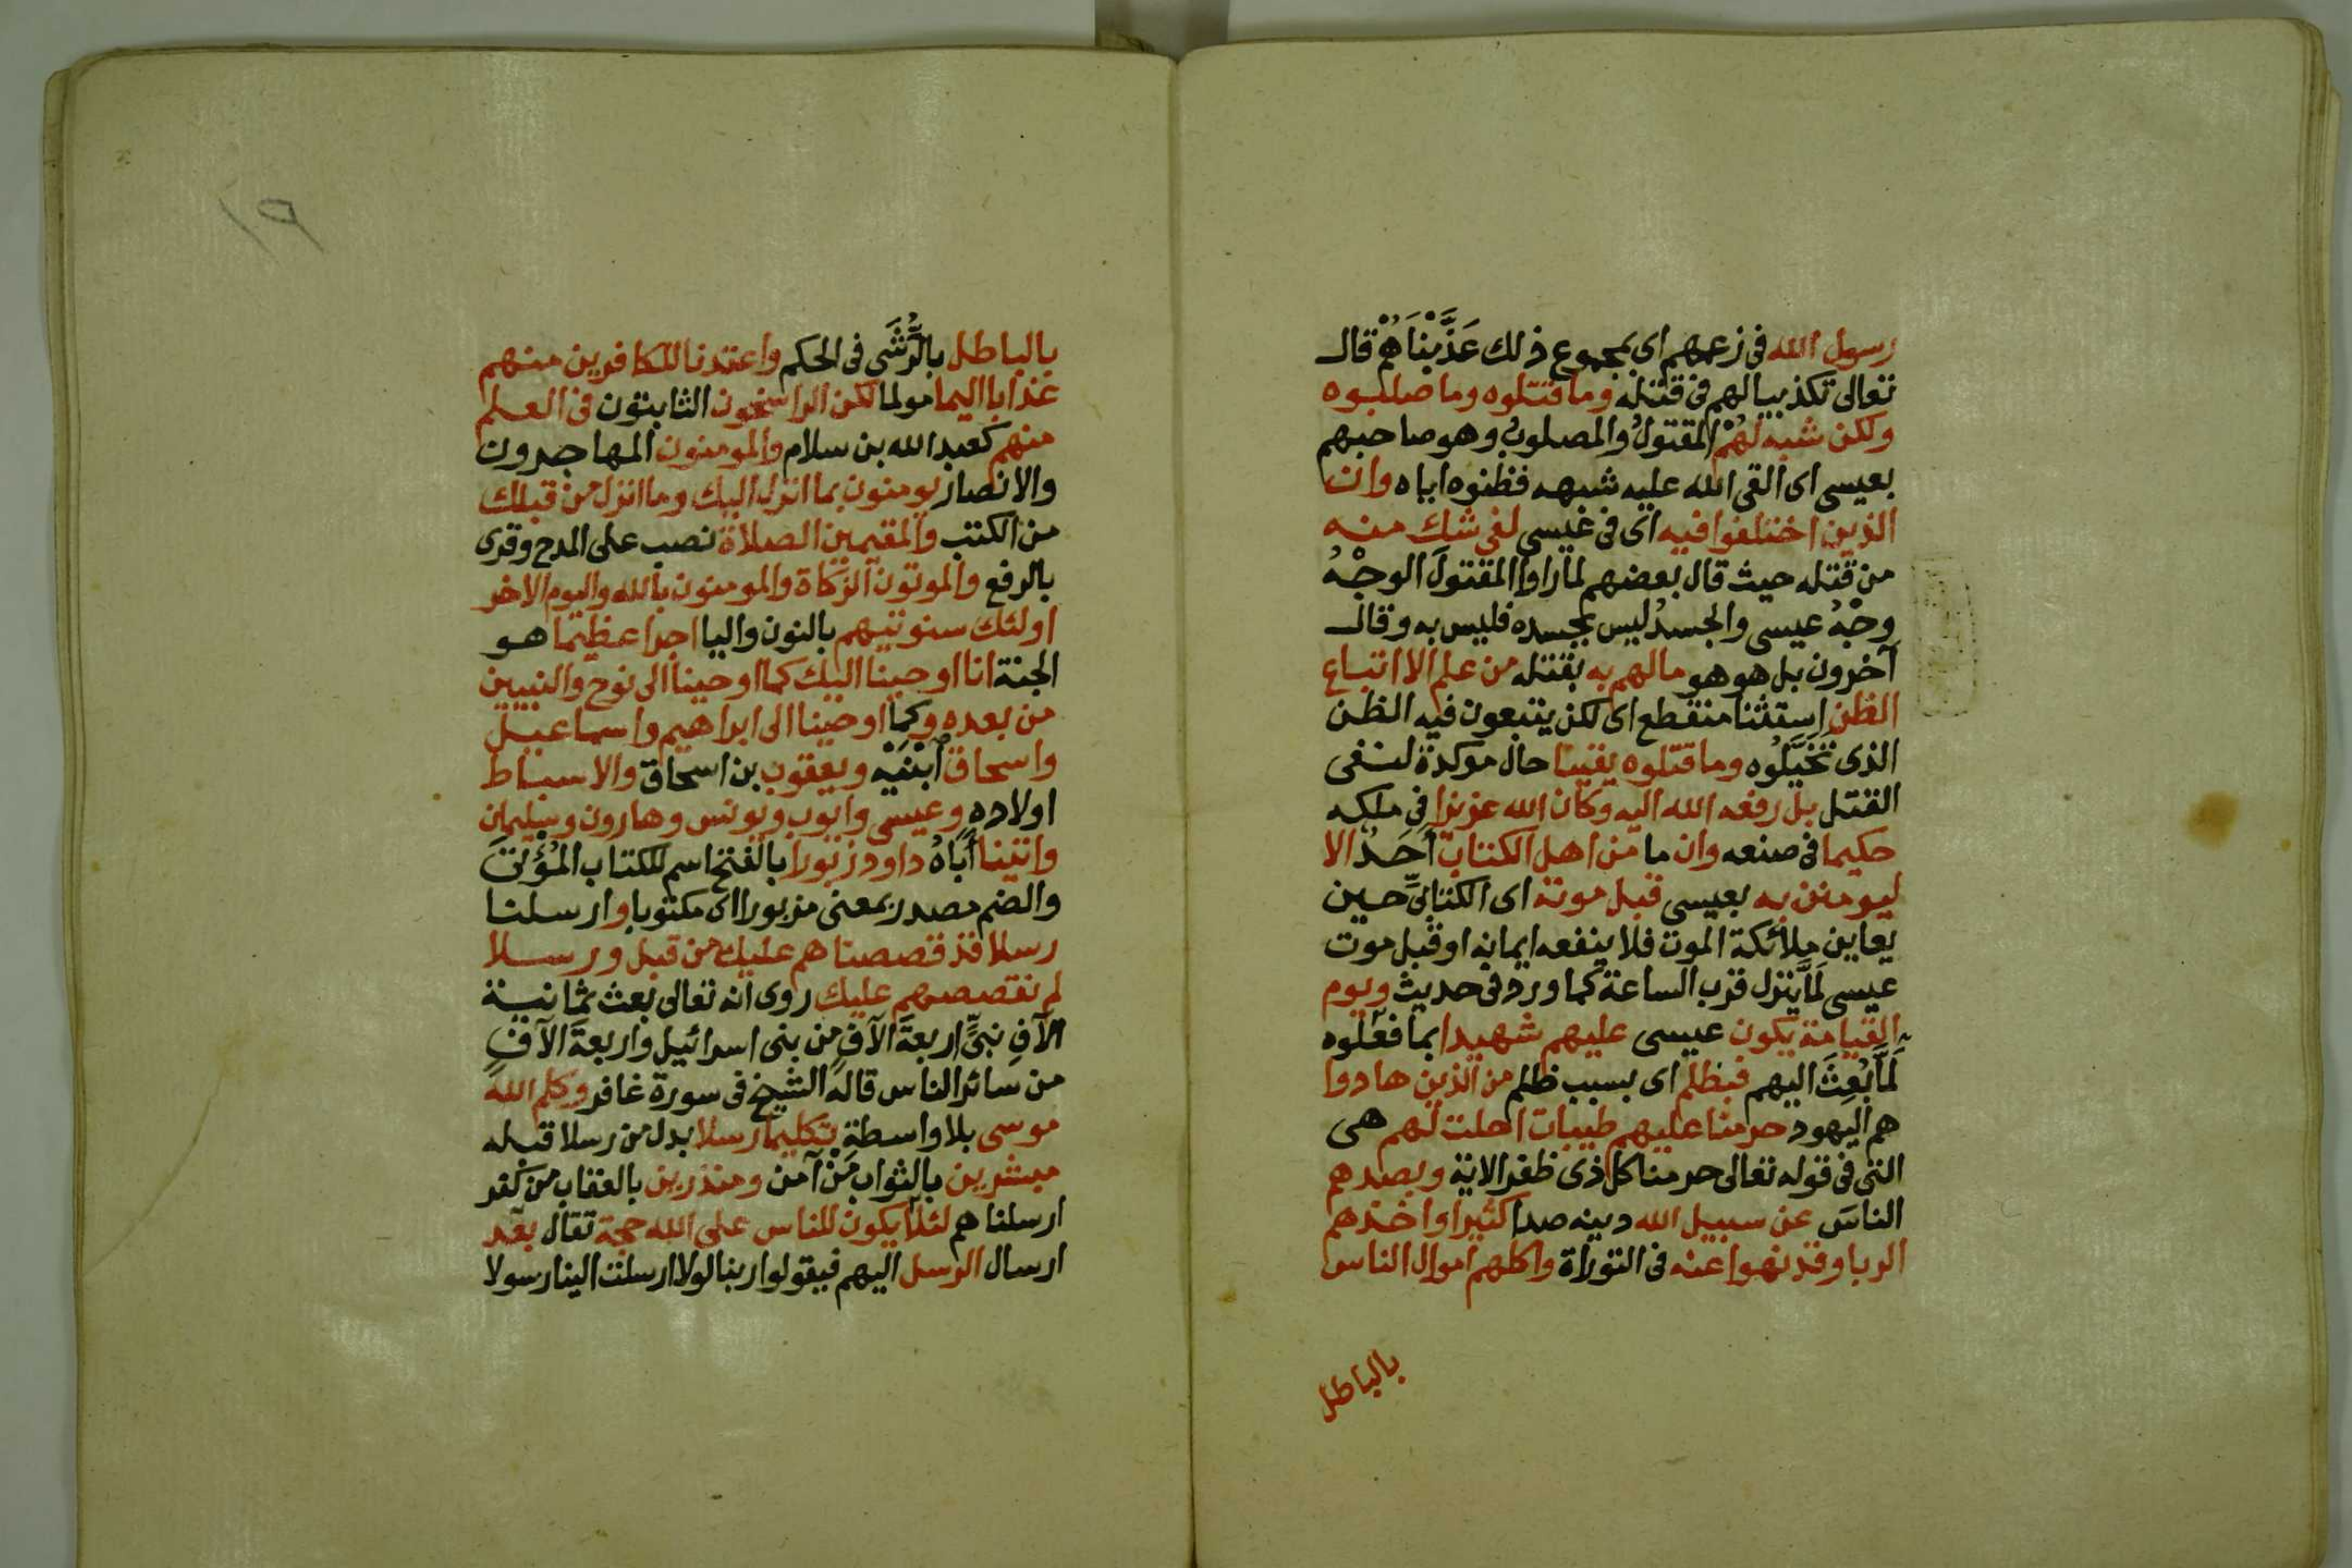 رسول الله فى زعمهم اى بمجموع ذلك عَذَّبْنَاهُمْ قال
تعالى تكذيبا لهم فى قتله وما قتلوه وما صلبوه
ولكن شبه لَهُمْ المقتولُ والمصلوبُ وهو صاحبهم
بعيسى اى القى الله عليه شبهه فظنوه اياه وان
الذين اختلفوا فيه اى فى عيسى لفى شك منه
من قتله حيث قال بعضهم لما راوا المقتولَ الوجْهُ
وجْهُ عيسى والجسدُ ليس بجسده فليس به وقال
آخرون بل هو هو مالهم به بقتله من علم الا اتباع
الظن استثنا منقطع اى لكن يتبعون فيه الظن
الذى تَخَيَّلُوه وما قتلوه يقينا حال موكدة لنفى
القتل بل رفعه الله اليه وكان الله عزيزا فى ملكه
حكيما فى صنعه وان ما من اهل الكتاب أحَدٌ الا
ليومنن به بعيسى قبل موته اى الكتابىِّ حين
يعاين ملائكة الموت فلا ينفعه ايمانه او قبل موت
عيسى لَمَّا ينزل قرب الساعة كما ورد فى حديث ويوم
القيامة يكون عيسى عليهم شهيدا بما فعلوه
لَمَّا بُعِثَ اليهم فبظلم اى بسبب ظلم من الذين هادوا
هم اليهود حرمنا عليهم طيبات احلت لهم هى
التى فى قوله تعالى حرمنا كل ذى ظفر الاية وبصدهم
الناسَ عن سبيل الله دينه صدا كثيرا واخذهم
الربا وقد نهوا عنه فى التوراة واكلهم اموال الناس
بالباطل
١٩
بالباطل بالرُّشَى فى الحكم واعتدنا للكافرين منهم
عذابا اليما مولما لكن الراسخون الثابتون فى العلم
منهم كعبد الله بن سلام والمومنون المهاجرون
والانصار يومنون بما انزل اليك وما انزل من قبلك
من الكتب والمقيمين الصلاة نصب على المدح وقرى
بالرفع والموتون الزكاة والمومنون بالله واليوم الاخر
اولئك سنوتيهم بالنون واليا اجرا عظيما هو
الجنة انا اوحينا اليك كما اوحينا الى نوح والنبيين
من بعده وكما اوحينا الى ابراهيم واسماعيل
واسحاق ابْنَيْه ويعقوب بن اسحاق والاسباط
اولاده وعيسى وايوب ويونس وهارون وسليمان
واتينا أَبَاهُ داود زبورا بالفتح اسم للكتاب المُؤْتَى
والضم مصدر بمعنى مزبورا اى مكتوبا وارسلنا
رسلا قد قصصناهم عليك من قبل ورسلا
لم نقصصهم عليك روى انه تعالى بعث بثمانية
الآفِ نبىٍّ اربعةَ الآفٍ من بنى اسرائيل واربعةَ الآفٍ
من سائر الناس قاله الشيخ فى سورة غافر وكلم الله
موسى بلا واسطة تكليما رسلا بدل من رسلا قبله
مبشرين بالثواب مَنْ آمن ومنذرين بالعقاب من كفر
ارسلناهم لئلا يكون للناس على الله حجة تقال بعد
ارسال الرسل اليهم فيقولوا ربنا لولا ارسلت الينا رسولا